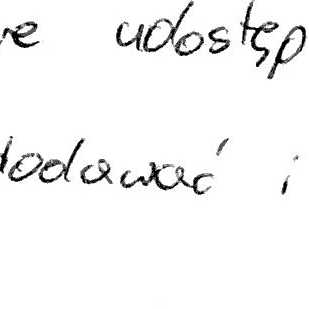 re udostęp
dodawać i